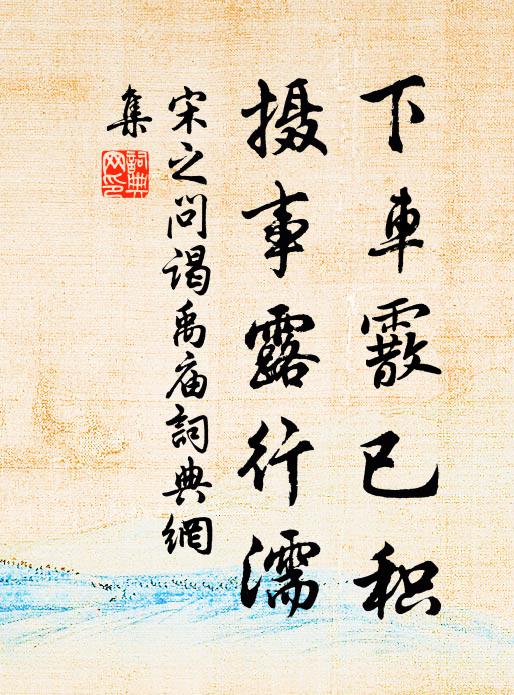 下車霰已积
摄事露行濡
宋之问谒禹庙詞典網
集
詞典
网印